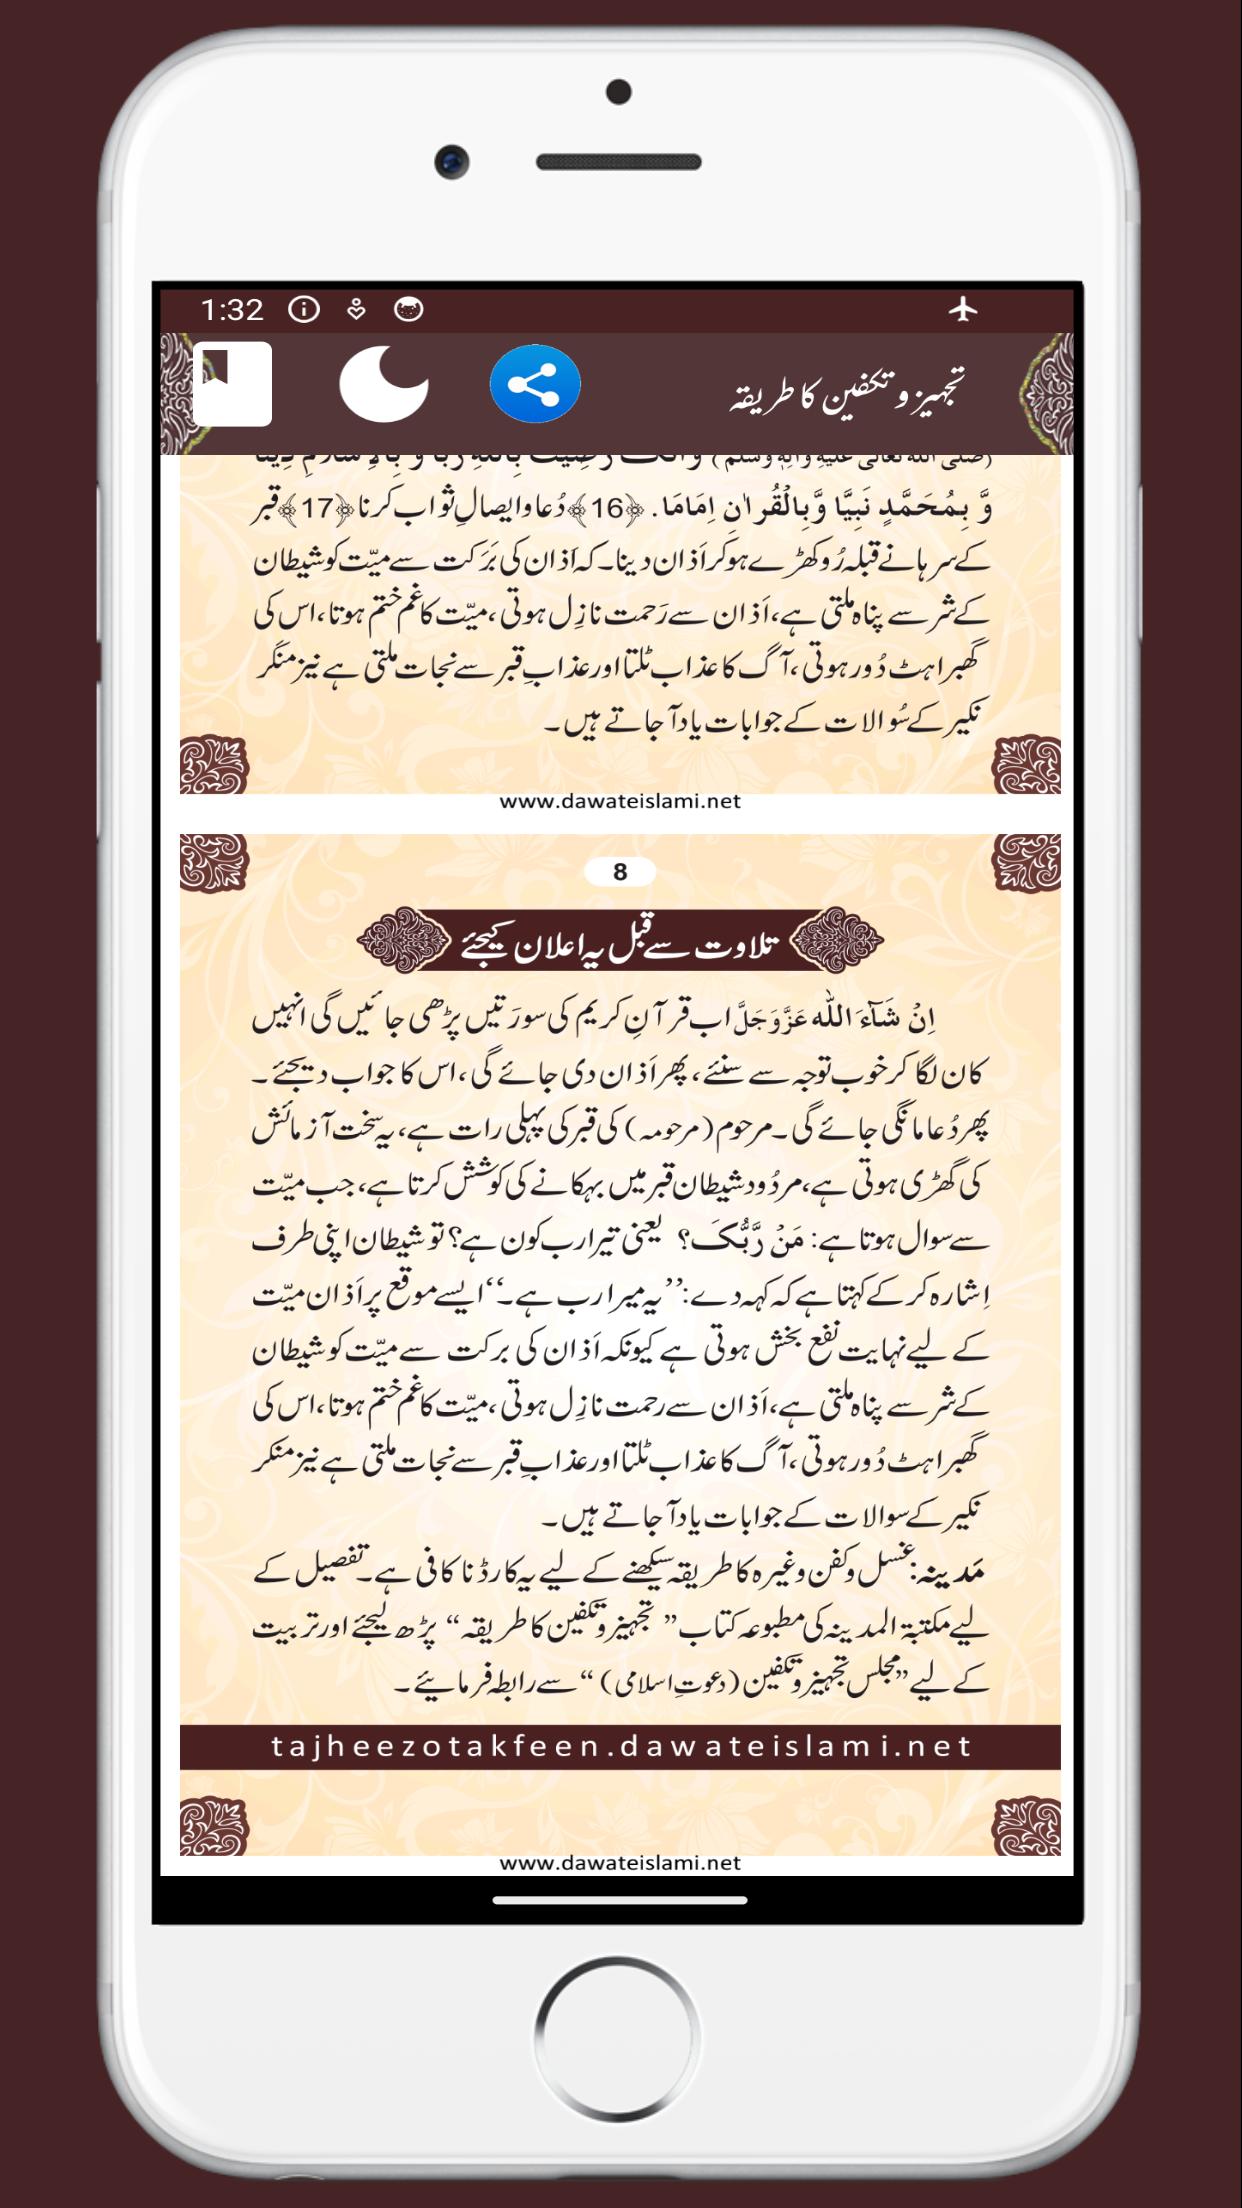 1:32
تجہیز و تکفین کا طریقہ
وَّ بِمُحَمَّدٍ نَبِیًّا وَّبِالْقُراٰنِ اِمَامَا. ﴿16﴾ دُعا و ایصالِ ثواب کرنا ﴿17﴾ قبر
کے سرہانے قبلہ رُو کھڑے ہوکر اَذان دینا۔ کہ اَذان کی بَرَکت سے میّت کو شیطان
کے شر سے پناہ ملتی ہے، اَذان سے رَحمت نازِل ہوتی، میّت کا غم ختم ہوتا، اس کی
گھبراہٹ دُور ہوتی، آگ کا عذاب ٹلتا اور عذابِ قبر سے نجات ملتی ہے نیز منکَر
نکیر کے سُوالات کے جوابات یاد آجاتے ہیں۔
www.dawateislami.net
8
تلاوت سے قبل یہ اعلان کیجئے
اِنْ شَآءَ اللّٰه عَزَّوَجَلَّ اب قرآنِ کریم کی سورَتیں پڑھی جائیں گی انہیں
کان لگا کر خوب توجہ سے سنئے، پھر اَذان دی جائے گی، اس کا جواب دیجئے۔
پھر دُعا مانگی جائے گی۔ مرحوم (مرحومہ) کی قبر کی پہلی رات ہے، یہ سخت آزمائش
کی گھڑی ہوتی ہے، مردُود شیطان قبر میں بہکانے کی کوشش کرتا ہے، جب میّت
سے سوال ہوتا ہے: مَنْ رَّبُّکَ؟ یعنی تیرا رب کون ہے؟ تو شیطان اپنی طرف
اِشارہ کر کے کہتا ہے کہ کہہ دے: ’’یہ میرا رب ہے۔‘‘ ایسے موقع پر اَذان میّت
کے لیے نہایت نفع بخش ہوتی ہے کیونکہ اَذان کی برکت سے میّت کو شیطان
کے شر سے پناہ ملتی ہے، اَذان سے رحمت نازِل ہوتی، میّت کا غم ختم ہوتا، اس کی
گھبراہٹ دُور ہوتی، آگ کا عذاب ٹلتا اور عذابِ قبر سے نجات ملتی ہے نیز منکر
نکیر کے سوالات کے جوابات یاد آجاتے ہیں۔
مَدینہ: غسل و کفن وغیرہ کا طریقہ سیکھنے کے لیے یہ کارڈ ناکافی ہے۔ تفصیل کے
لیے مکتبۃ المدینہ کی مطبوعہ کتاب ”تجہیز و تکفین کا طریقہ“ پڑھ لیجئے اور تربیت
کے لیے ”مجلس تجہیز و تکفین (دعوتِ اسلامی)“ سے رابطہ فرمائیے۔
tajheezotakfeen.dawateislami.net
www.dawateislami.net